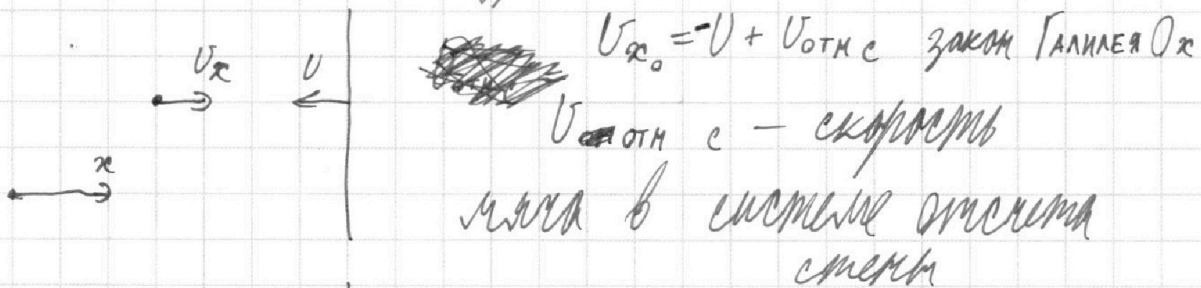 Uₓ₀ = -U + Uотн с закон Галилея Ox
Uₓ U
Uотн с – скорость
x
мяча в системе отсчета
стены